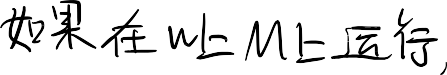 如果在w上M上运行,